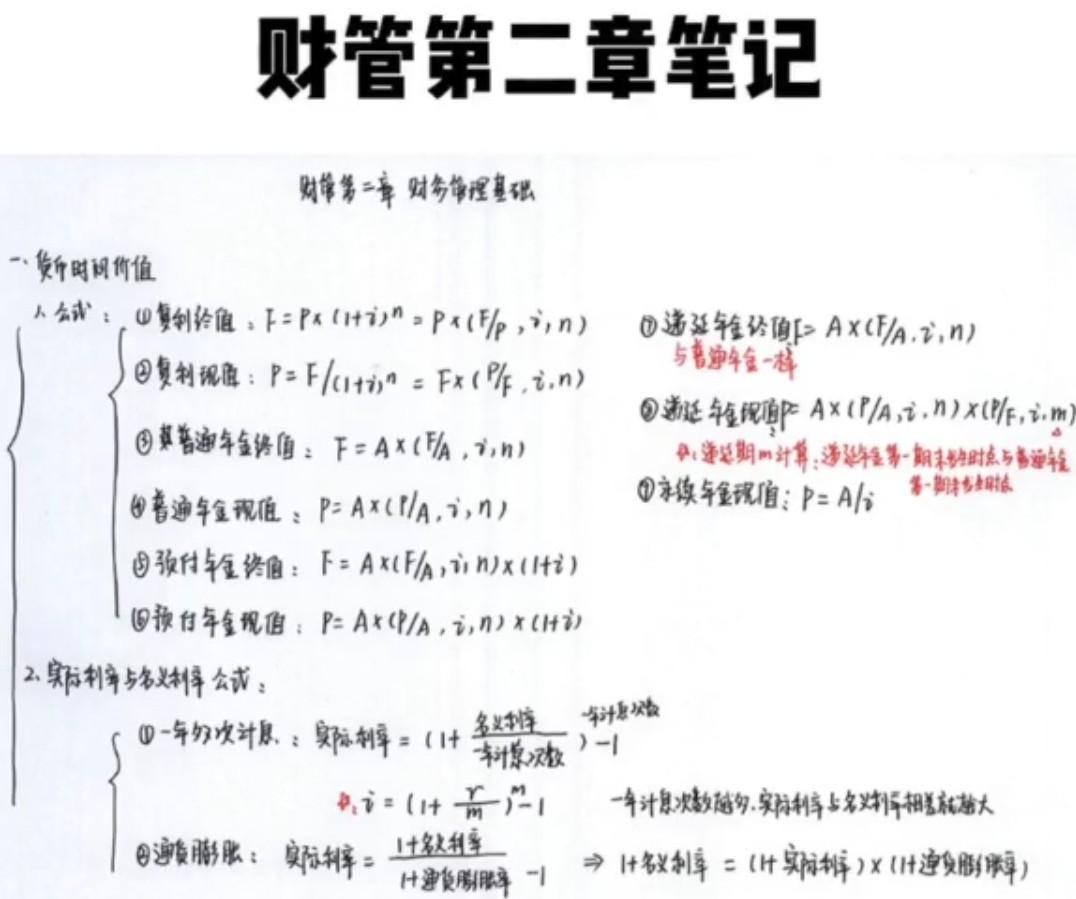 财管第二章笔记
财管第二章 财务管理基础
一、货币时间价值
1、公式：
①复利终值：F=P×(1+i)ⁿ=P×(F/P,i,n)
②复利现值：P=F/(1+i)ⁿ=F×(P/F,i,n)
③普通年金终值：F=A×(F/A,i,n)
④普通年金现值：P=A×(P/A,i,n)
⑤预付年金终值：F=A×(F/A,i,n)×(1+i)
⑥预付年金现值：P=A×(P/A,i,n)×(1+i)
⑦递延年金终值F=A×(F/A,i,n)
与普通年金一样
⑧递延年金现值P=A×(P/A,i,n)×(P/F,i,m)
递延期m计算：递延年金第一期末发生时点与普通年金
第一期末发生时点
⑨永续年金现值：P=A/i
2、实际利率与名义利率公式：
①一年多次计息：实际利率=(1+名义利率/一年计息次数)^一年计息次数-1
i=(1+r/m)^m-1 一年计息次数越多,实际利率与名义利率相差越大
②通货膨胀：实际利率=1+名义利率/1+通货膨胀率-1 ⇒ 1+名义利率=(1+实际利率)×(1+通货膨胀率)